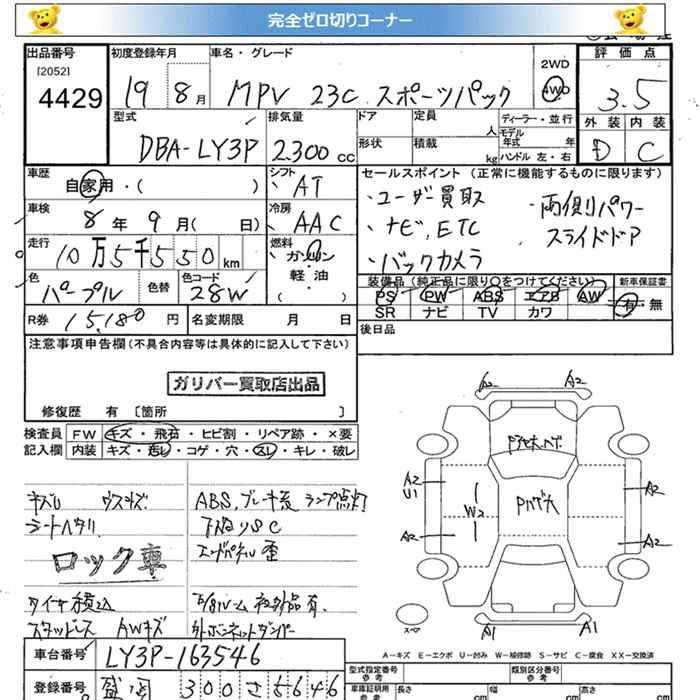 完全ゼロ切りコーナー
出品番号 初度登録年月 車名・グレード 2WD 評価点
[2052] 4429 19 8月 MPV 23C スポーツパック 4WD 3.5
型式 排気量 ドア 定員 人 ディーラー・並行 外装 内装
DBA-LY3P 2.300cc 形状 積載 kg モデル年式 年式 ハンドル 左・右 D C
車歴 シフト セールスポイント (正常に機能するものに限ります)
自家用・( ) AT ・ユーザー買取 ・両側パワー
車検 冷房 ・ナビ, ETC スライドドア
8年 9月( 日) AAC ・バックカメラ
走行 燃料
10万5千550km ガソリン
軽・油
( )
色 色替 色コード 装備品 (純正品に限り○をつけてください) 新車保証書
パープル 28W PS PW ABS エアB AW 有・無
SR ナビ TV カワ
R券 15,180円 名変期限 月 日 後日品
注意事項申告欄(不具合内容等は具体的に記入して下さい)
ガリバー買取店出品
修復歴 有 [箇所 ]
検査員 FW キズ・飛石・ヒビ割・リペア跡・×要
記入欄 内装 キズ・汚レ・コゲ・穴・スレ・キレ・破レ
シートヘタリ
ロック車
タイヤ積込
スタッドレス AWキズ
ABS, ブレーキ系 ランプ点灯
下廻りSC
エンドパネル歪
社外品有
外 ボンネットダンパー
A2 A2
A2 U1 W2 A2
A2 A2
A1 A1
スペア
A-キズ E-エクボ U-凹み W-補修跡 S-サビ C-腐食 XX-交換済
車台番号 LY3P-163546
登録番号 盛岡 300 さ 5646
型式指定番号 参考 類別区分番号 参考
車庫証明用 参考 長さ cm 幅 cm 高さ cm